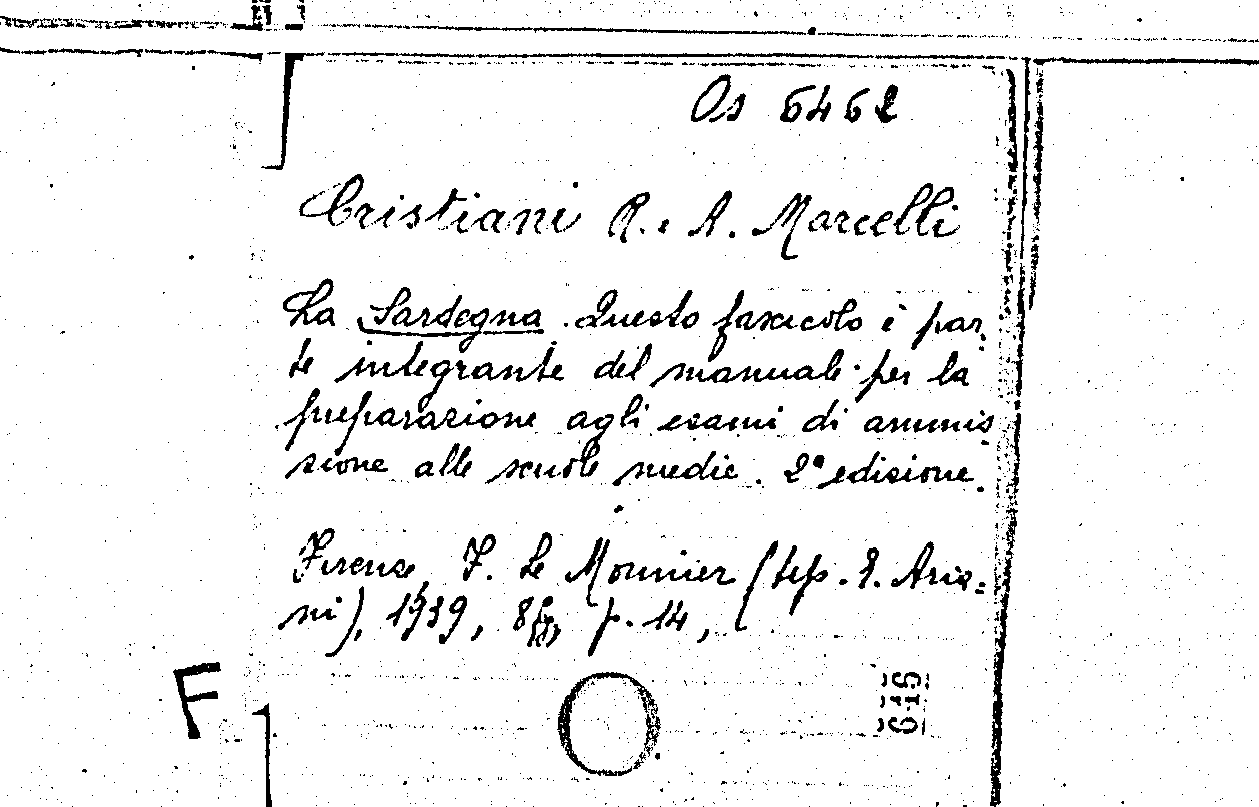 Os 6462
Cristiani R. e A. Marcelli
La Sardegna. Questo fascicolo è par-
te integrante del manuale per la
preparazione agli esami di ammis-
sione alle scuole medie. 2ª edisione.
Firenze, F. Le Monnier (tip. E. Aria-
ni), 1939, 8º, p. 14,
F